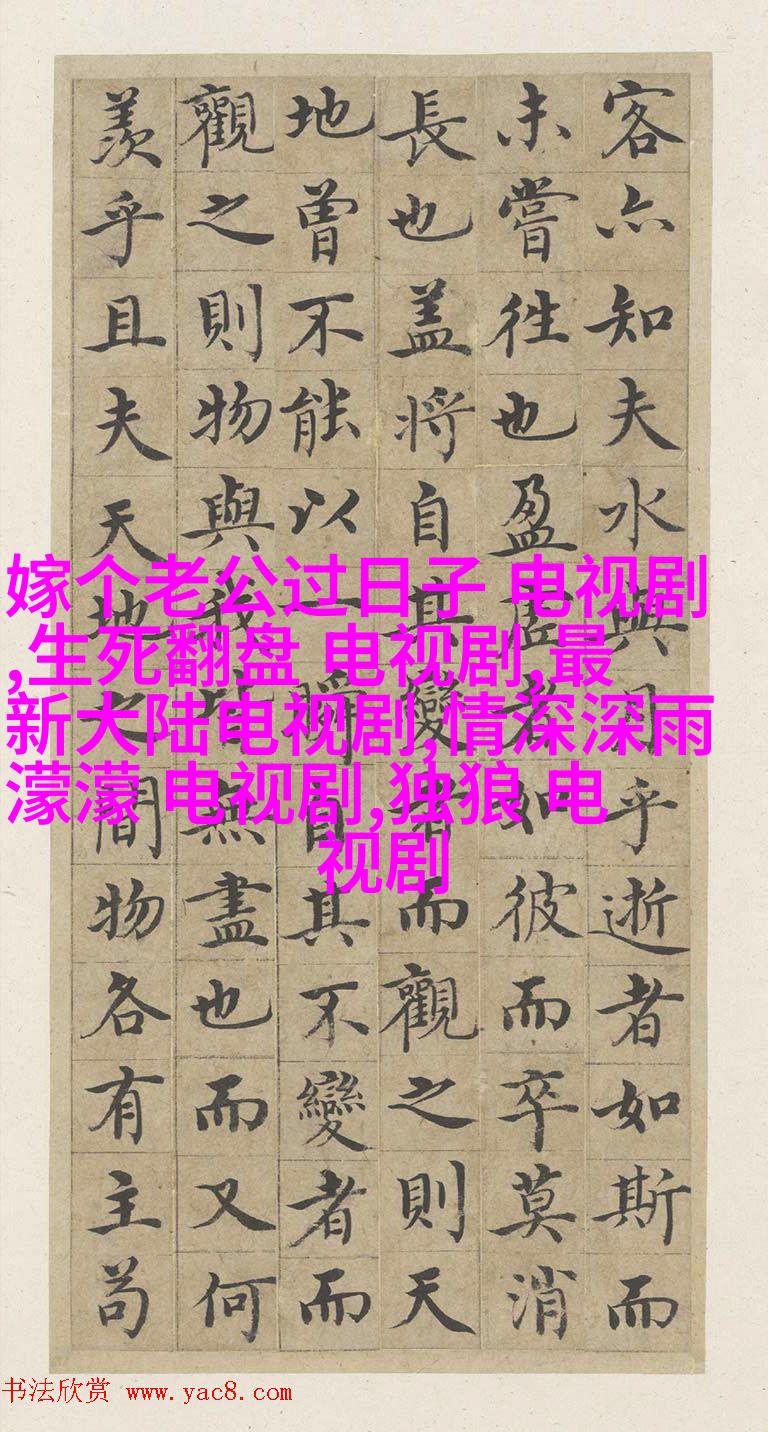 客亦知夫水與月乎逝者如斯而
未嘗往也盈虛者如彼而卒莫消
長也蓋將自其變者而觀之則天
地曾不能以一瞬自其不變者而
觀之則物與我皆無盡也而又何
羨乎且夫天地之間物各有主苟
嫁个老公过日子 电视剧
,生死翻盘 电视剧,最
新大陆电视剧,情深深雨
濛濛 电视剧,独狼 电
视剧
书法欣赏 www.yac8.com